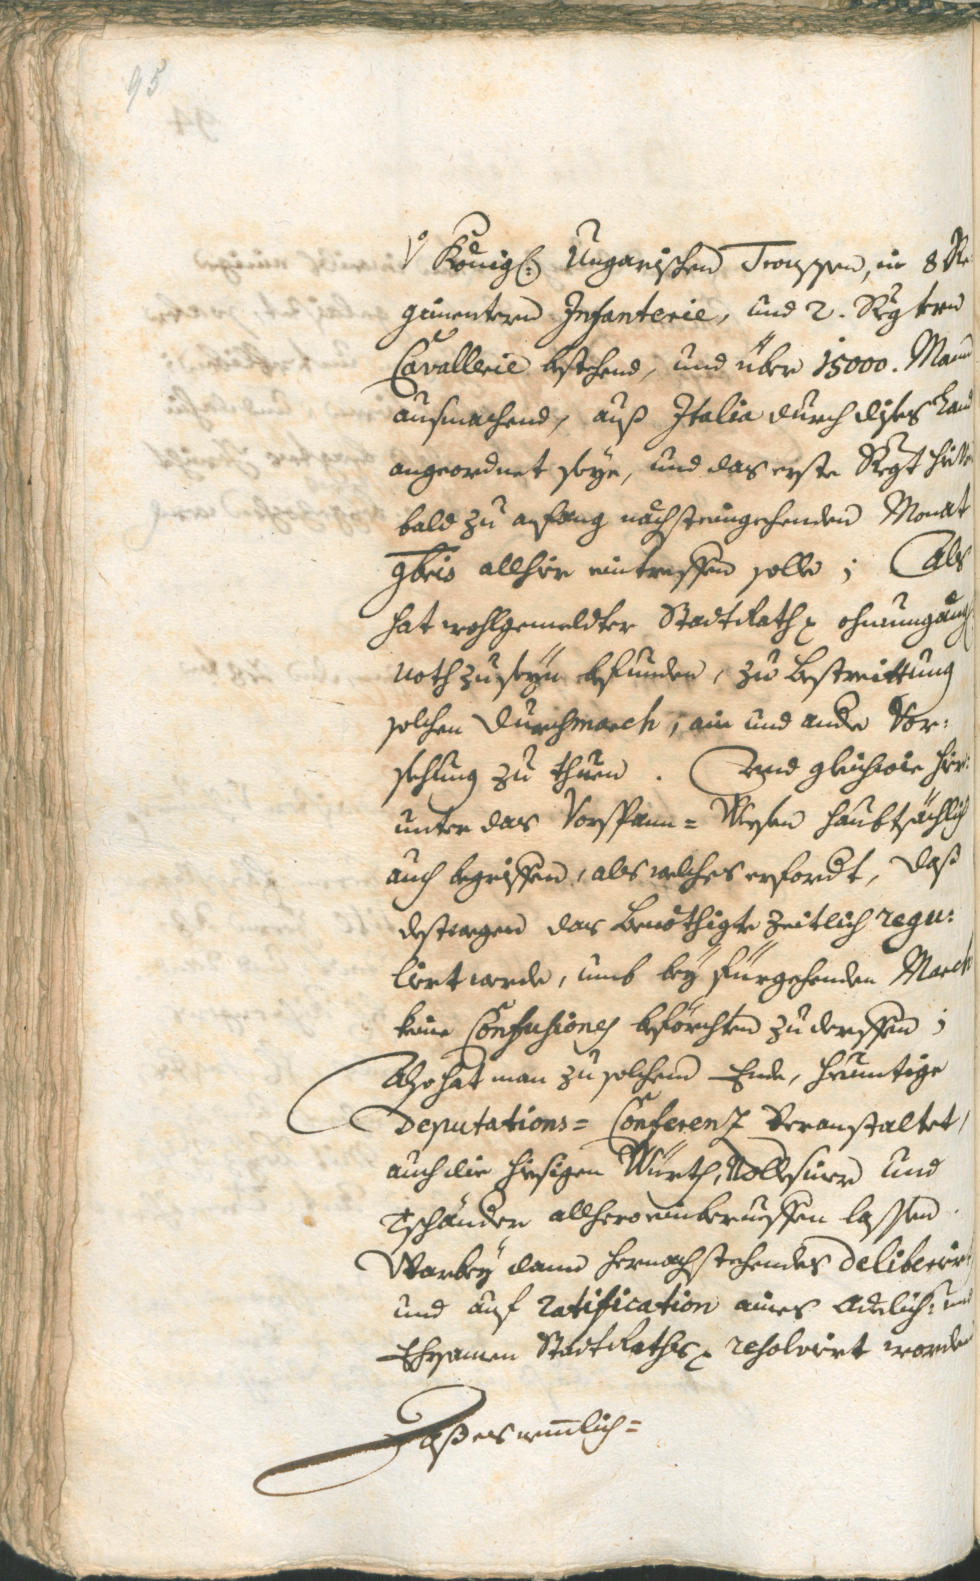 95
V° Königl: Ungarischen Trouppen, in 8 Re
gimentern Infanterie, und 2. Regtern
Cavallerie bestehend, und über 15000. Mann
ausmachend, auß Italia durch dises Land
angeordnet seye, und das erste Regt
bald zu anfang nächsteingehenden Monat
9bris allhier eintreffen solle; Als
hat wohlgemeldter StadtRath ohnumgängl:
noth zu seyn befunden, zu Bestreittung
solchen Durchmarch, ain und andre Vor:
sehung zu thuen. Und gleichwie hier:
unter das Vorspann= Wesen haubtsächlich
auch begriffen, als welches erfordt, daß
destwegen das Benöthigte zeitlich regu:
lirt werde, umb bey fürgehenden March
keine Confusiones beförchten zu derffen;
Also hat man zu solchem Ende, heuntige
Deputations= Conferenz veranstaltet,
auch die hiesigen Würth, und
Tschänder allhero einberueffen lassen.
Warbey dann hernachstehendes deliberirt,
und auf ratification aines Adelich: und
Ehrsamen StadtRaths resolvirt worden
Daß es nemlich=